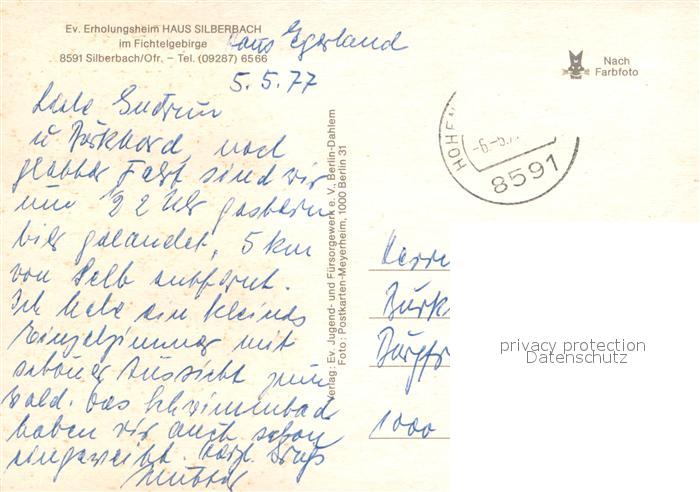 Ev. Erholungsheim HAUS SILBERBACH
im Fichtelgebirge
8591 Silberbach/Ofr. – Tel. (09287) 6566
Haus Egerland
5.5.77
Nach
Farbfoto
Liebe Gudrun
u Burkhard nach
glatter Fahrt sind wir
um 22 Uhr gestern
hier gelandet, 5 km
von Selb entfernt.
Ich habe ein kleines
Einzelzimmer mit
schöner Aussicht zum
Wald. Das Schwimmbad
haben wir auch schon
eingeweiht. Herzl. Grüße
Verlag: Ev. Jugend- und Fürsorgewerk e. V., Berlin-Dahlem
Foto: Postkarten-Meyerheim, 1000 Berlin 31
HOHEN
-6.-5.7
8591
Burk
1000
privacy protection
Datenschutz